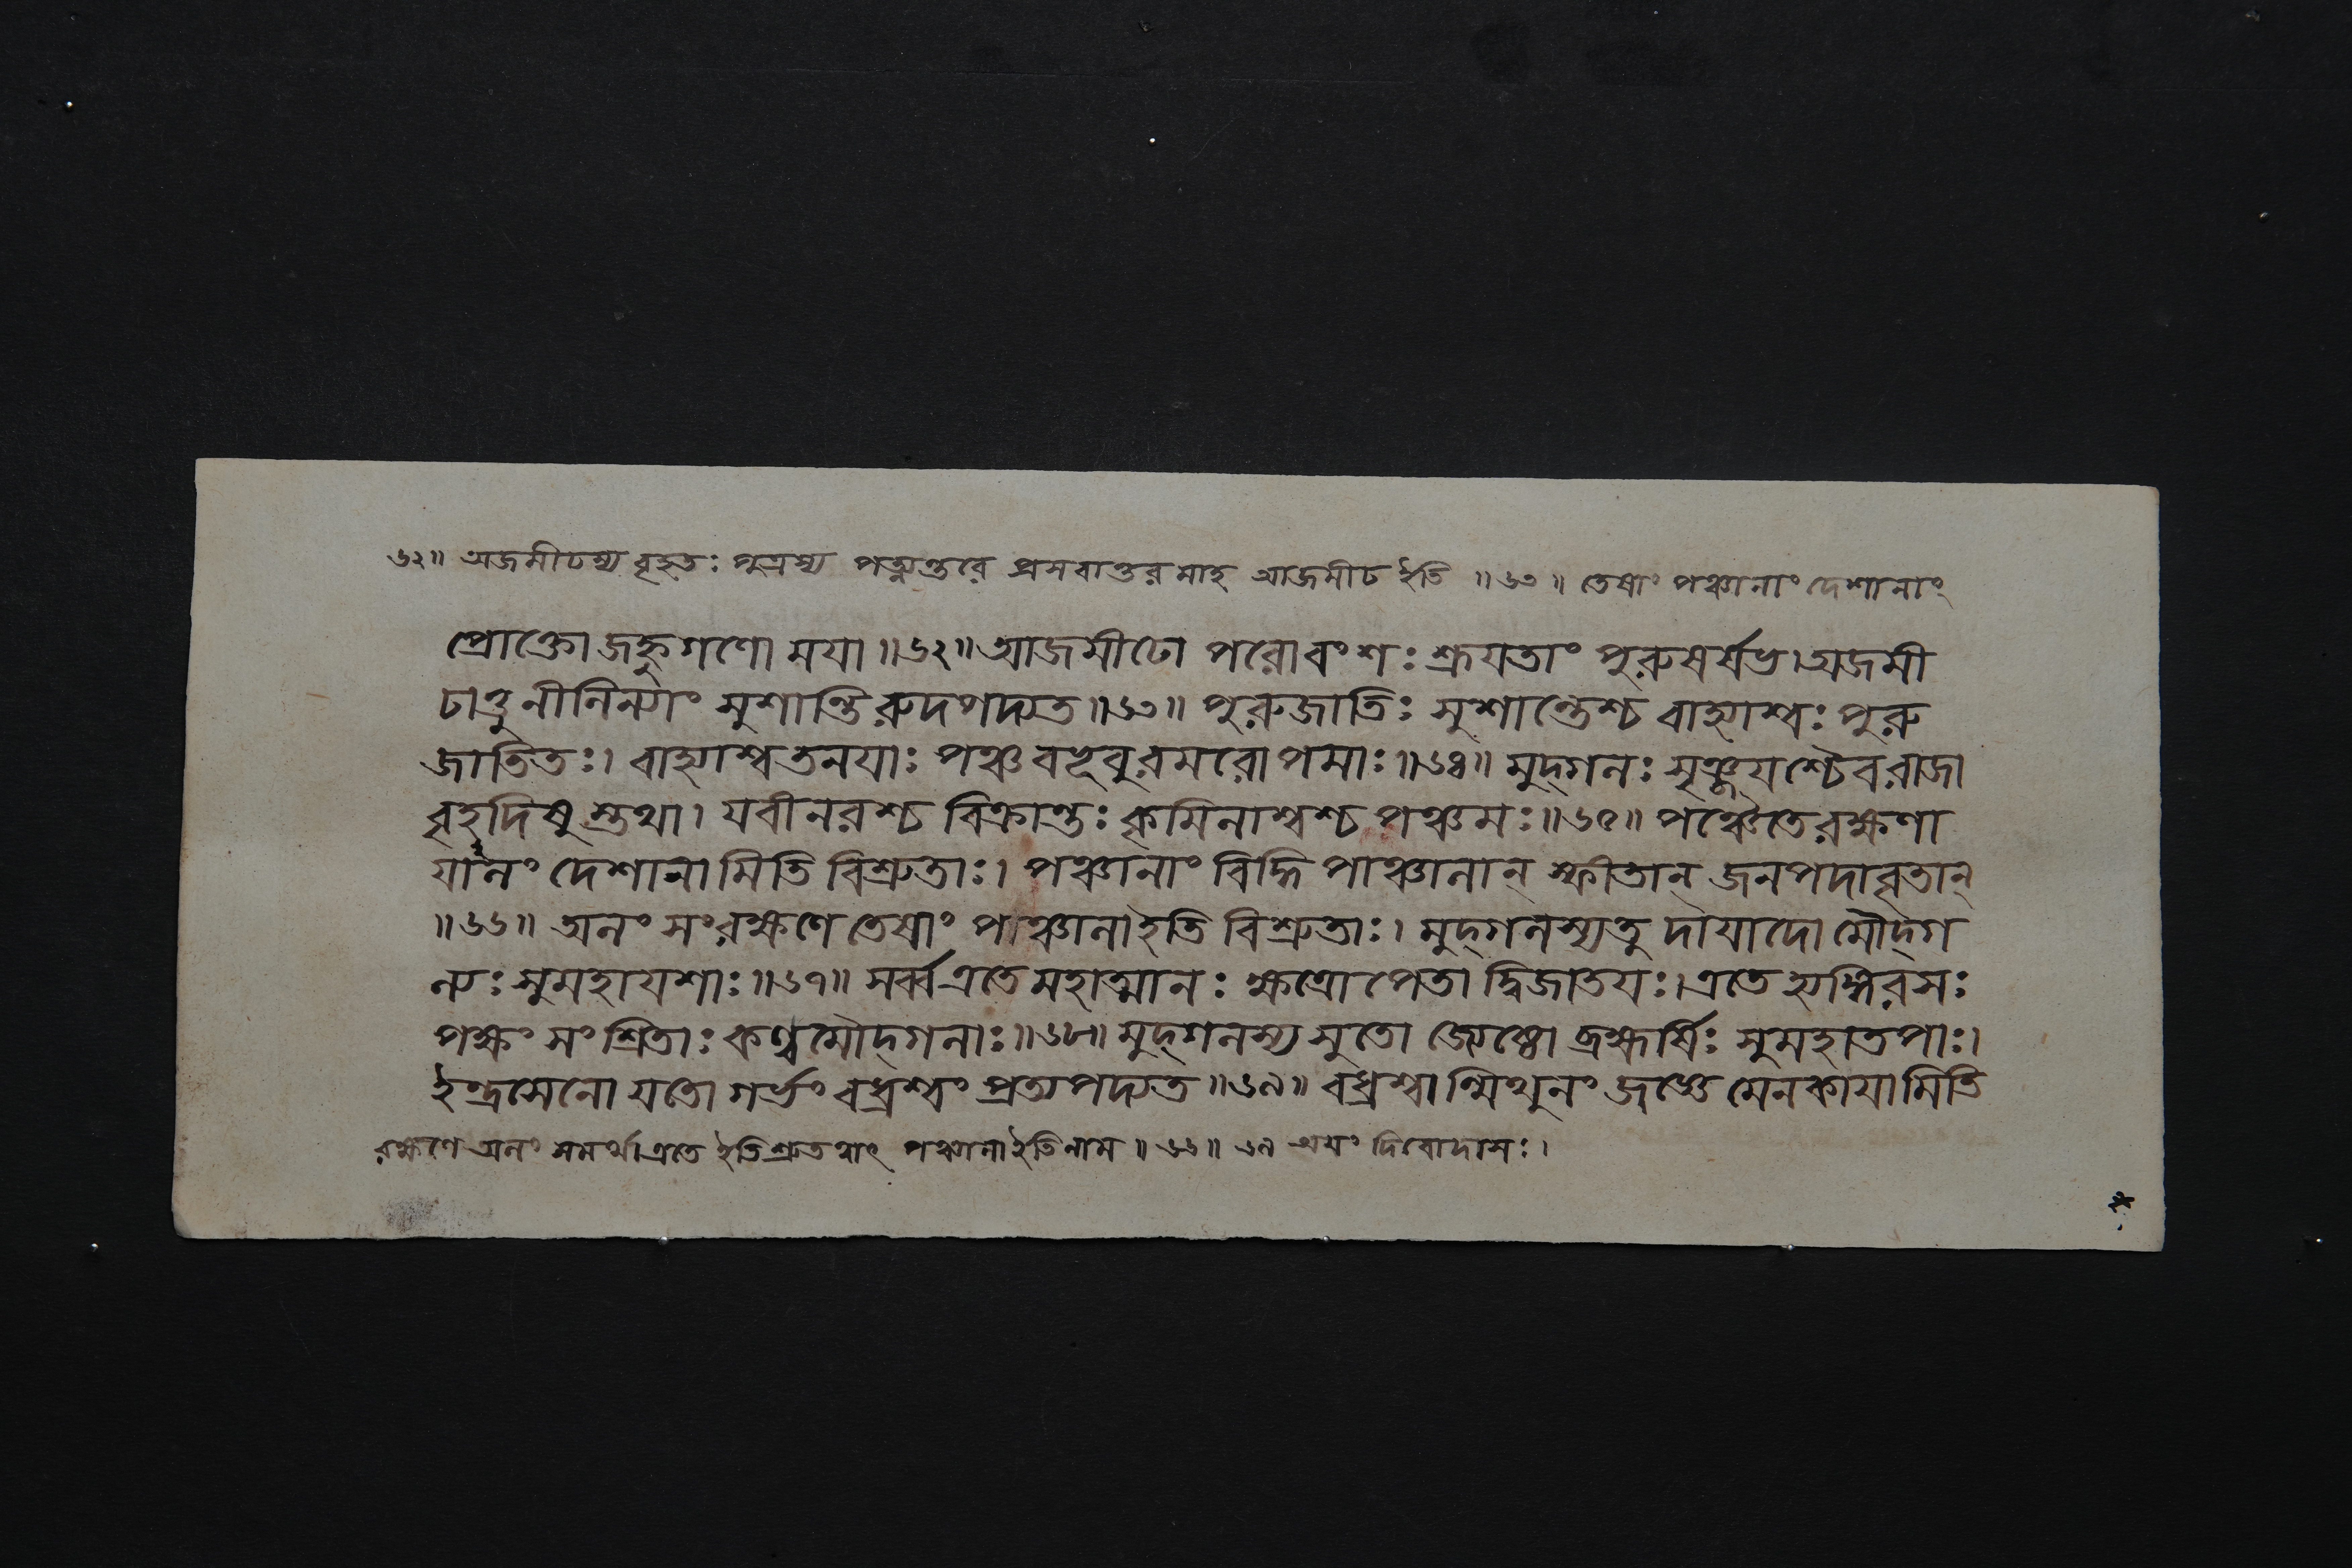 ৬২॥ অজমীঢস্য বৃহতঃ পুত্রস্য পত্ন্যন্তরে প্রসবান্তরমাহ আজমীঢ ইতি ॥৬৩॥ তেষাং পঞ্চানাং দেশানাং
প্রোক্তো জহ্নুগণো ময়া ॥৬২॥ আজমীঢো পরোবংশঃ শ্রূয়তাং পুরুষর্ষভ। অজমী
ঢাত্তু নীলিন্যাং সুশান্তিরুদপদ্যত ॥৬৩॥ পুরুজাতিঃ সুশান্তেশ্চ বাহ্যাশ্বঃ পুরু
জাতিতঃ। বাহ্যাশ্বতনয়াঃ পঞ্চ বভূবুরমরোপমাঃ ॥৬৪॥ মুদ্গলঃ সৃঞ্জয়শ্চৈব রাজা
বৃহদিষুস্তথা। যবীনরশ্চ বিক্রান্তঃ কৃমিলাশ্বশ্চ পঞ্চমঃ ॥৬৫॥ পঞ্চৈতে রক্ষণা
য়ালং দেশানামিতি বিশ্রুতাঃ। পঞ্চানাং বিদ্ধি পাঞ্চালান্ স্ফীতান্ জনপদাবৃতান্
॥৬৬॥ অলং সংরক্ষণে তেষাং পাঞ্চালা ইতি বিশ্রুতাঃ। মুদ্গলস্য তু দায়াদো মৌদ্গ
ল্যঃ সুমহায়শাঃ ॥৬৭॥ সর্ব্ব এতে মহাত্মানঃ ক্ষত্রোপেতা দ্বিজাতয়ঃ। এতে হ্যঙ্গিরসঃ
পক্ষং সংশ্রিতাঃ কণ্বমৌদ্গলাঃ ॥৬৮॥ মুদ্গলস্য সুতো জ্যেষ্ঠো ব্রহ্মর্ষিঃ সুমহাতপাঃ।
ইন্দ্রসেনো যতো গর্ভং বধ্র্যশ্বং প্রত্যপদ্যত ॥৬৯॥ বধ্র্যশ্বান্মিথুনং জজ্ঞে মেনকায়ামিতি
রক্ষণে অলং সমর্থা এতে ইতি শ্রুতত্বাৎ পঞ্চালা ইতি নাম ॥ ৬৬॥ ৬৯ অয়ং দিবোদাসঃ।